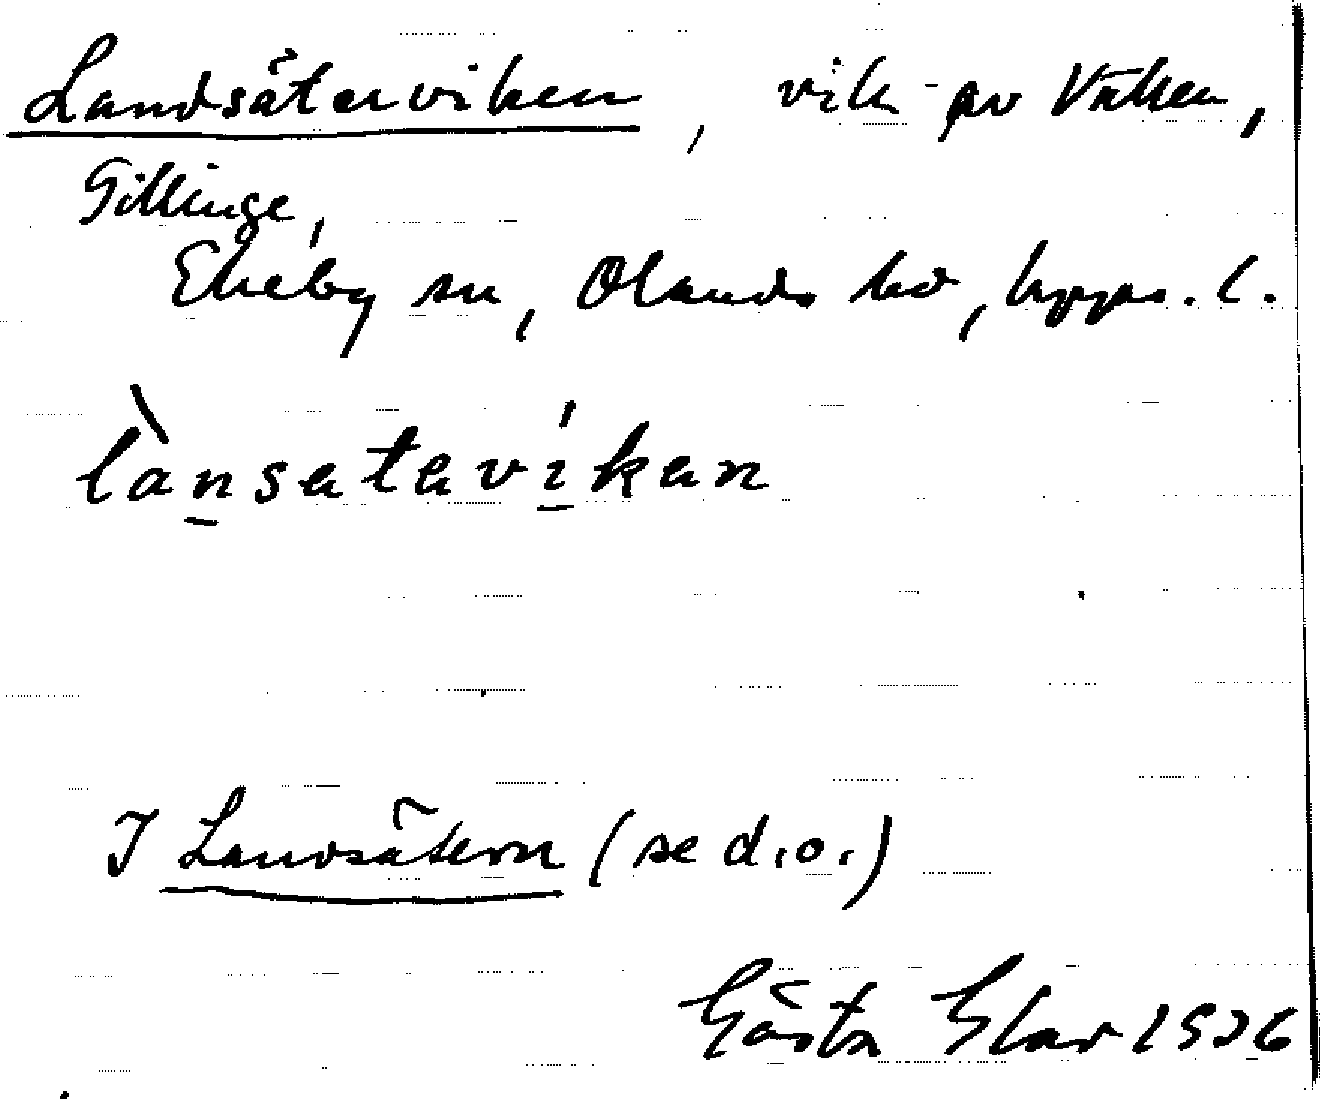 Landsäterviken, vik av Vällen,
Gillinge,
Ekeby sn, Olands hd, Upps. l.
lànsatavíkan
I Landsätern (se d.o.)
Gösta 1936